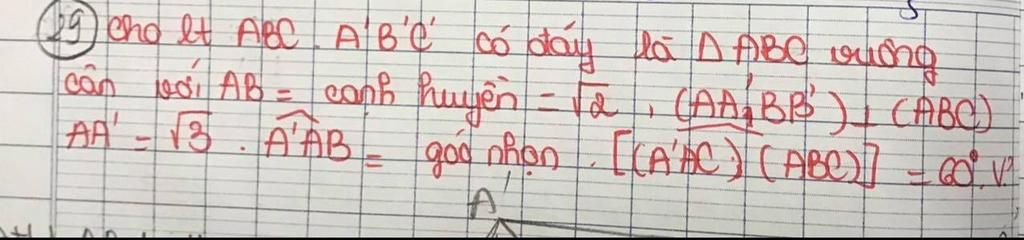 29) Cho lt ABC.A'B'C' có đáy là Δ ABC vuông
cân với AB = cạnh huyền = √2, (AA'BB') ⊥ (ABC)
AA' = √3. A'AB = góc nhọn. [(A'AC)(ABC)] = 60°. V?
A'